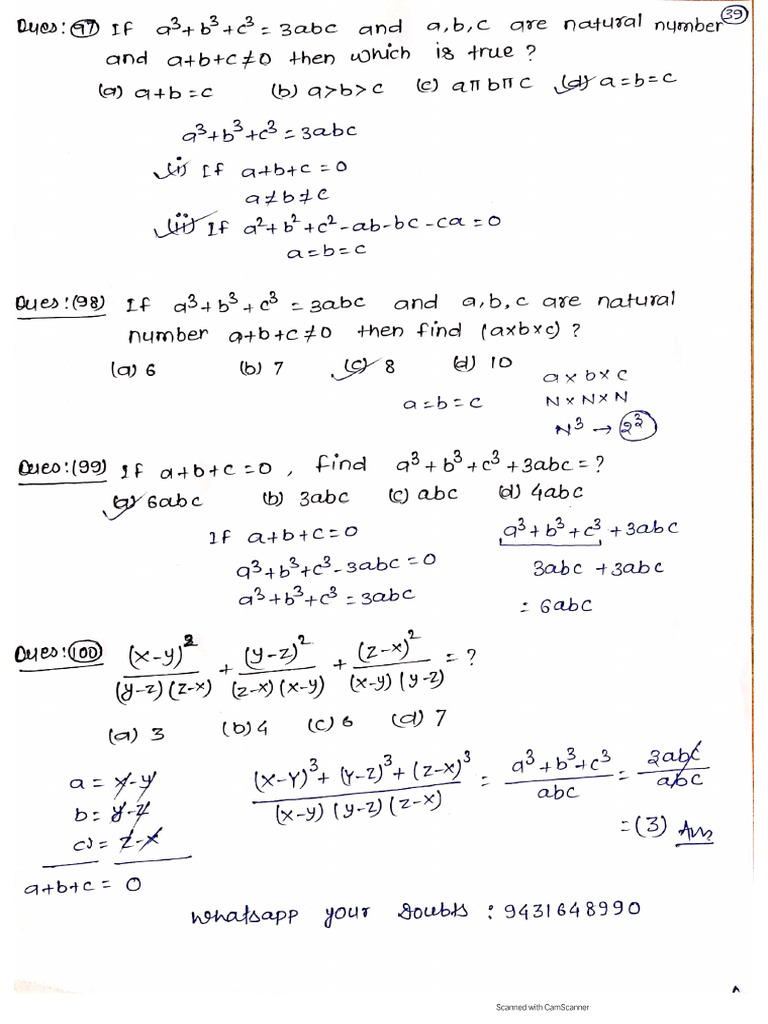 39
Ques: 97 If a³+b³+c³ = 3abc and a,b,c are natural number
and a+b+c≠0 then which is true ?
(a) a+b=c (b) a>b>c (c) aπbπc (d) a=b=c
a³+b³+c³=3abc
(i) If a+b+c=0
a≠b≠c
(ii) If a²+b²+c²-ab-bc-ca=0
a=b=c
Ques:(98) If a³+b³+c³=3abc and a,b,c are natural
number a+b+c≠0 then find (a×b×c) ?
(a) 6 (b) 7 (c) 8 (d) 10
a×b×c
a=b=c N×N×N
N³ → 2³
Ques:(99) If a+b+c=0, find a³+b³+c³+3abc=?
(a) 6abc (b) 3abc (c) abc (d) 4abc
If a+b+c=0 a³+b³+c³+3abc
a³+b³+c³-3abc=0 3abc+3abc
a³+b³+c³=3abc = 6abc
Ques:(100) (x-y)²/(y-z)(z-x) + (y-z)²/(z-x)(x-y) + (z-x)²/(x-y)(y-z) = ?
(a) 3 (b) 4 (c) 6 (d) 7
a = x-y (x-y)³+(y-z)³+(z-x)³/(x-y)(y-z)(z-x) = a³+b³+c³/abc = 3abc/abc
b = y-z
c) = z-x =(3) Ans
a+b+c = 0
Whatsapp your Doubts : 9431648990
Scanned with CamScanner